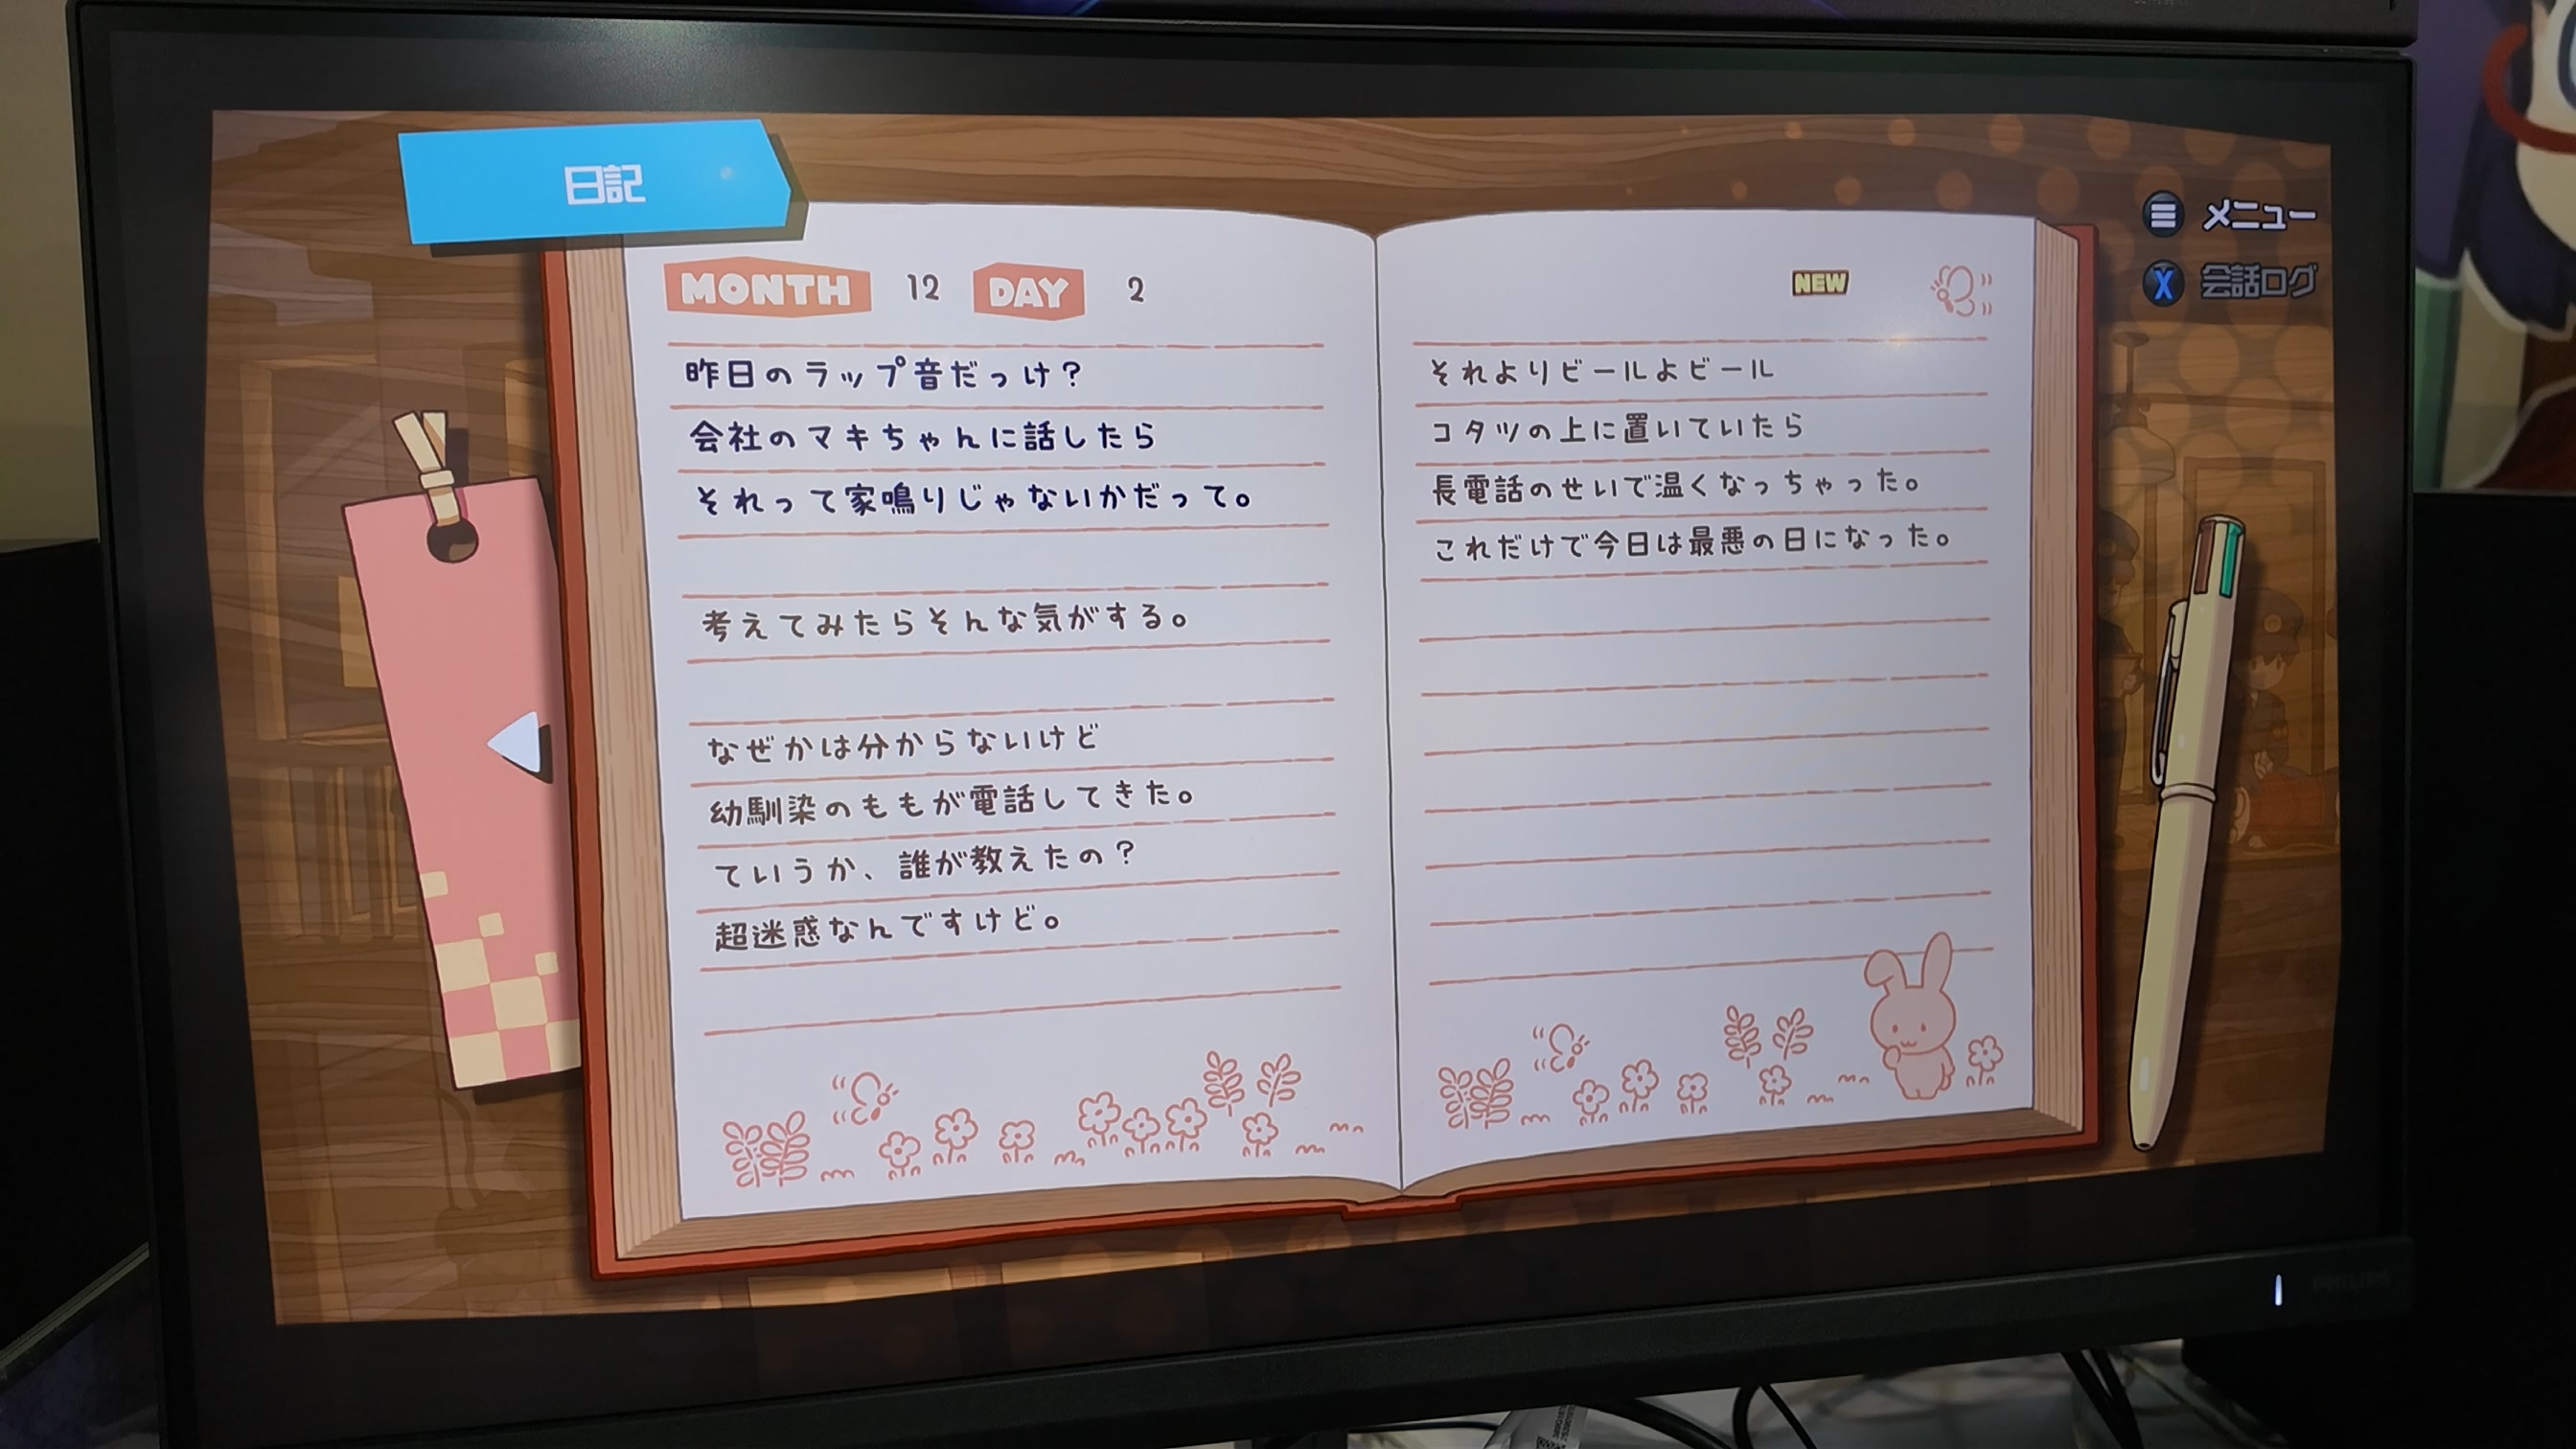 日記
MONTH 12 DAY 2
昨日のラップ音だっけ？
会社のマキちゃんに話したら
それって家鳴りじゃないかだって。
考えてみたらそんな気がする。
なぜかは分からないけど
幼馴染のももが電話してきた。
ていうか、誰が教えたの？
超迷惑なんですけど。
NEW
それよりビールよビール
コタツの上に置いていたら
長電話のせいで温くなっちゃった。
これだけで今日は最悪の日になった。
メニュー
X 会話ログ
PHILIPS